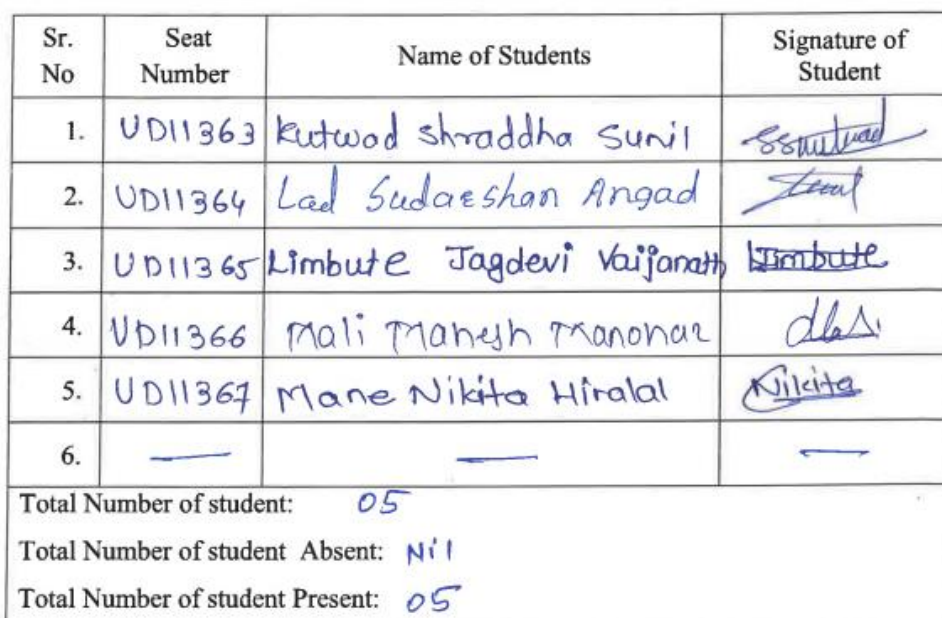 Sr. No Seat Number Name of Students Signature of Student
1. UD11363 Kutwad Shraddha Sunil
2. UD11364 Lad Sudarshan Angad
3. UD11365 Limbute Jagdevi Vaijanath Limbute
4. UD11366 Mali Mahesh Manohar
5. UD11367 Mane Nikita Hiralal Nikita
6. — — —
Total Number of student: 05
Total Number of student Absent: Nil
Total Number of student Present: 05